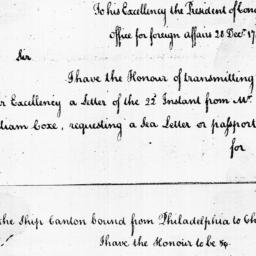 To his Excellency the President of Con
Office for foreign affairs 28 Decr. 17
Sir
I have the Honour of transmitting
r Excellency a Letter of the 22d Instant from Mr.
liam Coxe, requesting a Sea Letter or passport
for
the Ship Canton bound from Philadelphia to Ch
I have the Honour to be &c.